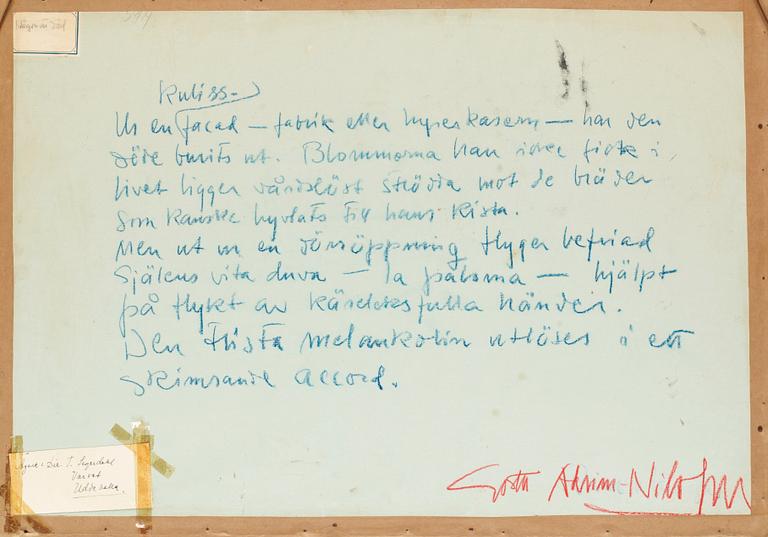 Någon är död
Kuliss
Ur en facad — fabrik eller hyreskasern — har den
döde burits ut. Blommorna han icke fick i
livet ligger vårdslöst strödda mot de bräder
som kanske hyvlats till hans kista.
Men ut ur en dörröppning flyger befriad
själens vita duva — la paloma — hjälpt
på flykt av kärleksfulla händer.
Den trista melankolin utlöses i ett
skimrande accord.
Ägare: Dir. T. Segerdahl
Varvet
Uddevalla
Gösta Adrian-Nilsson